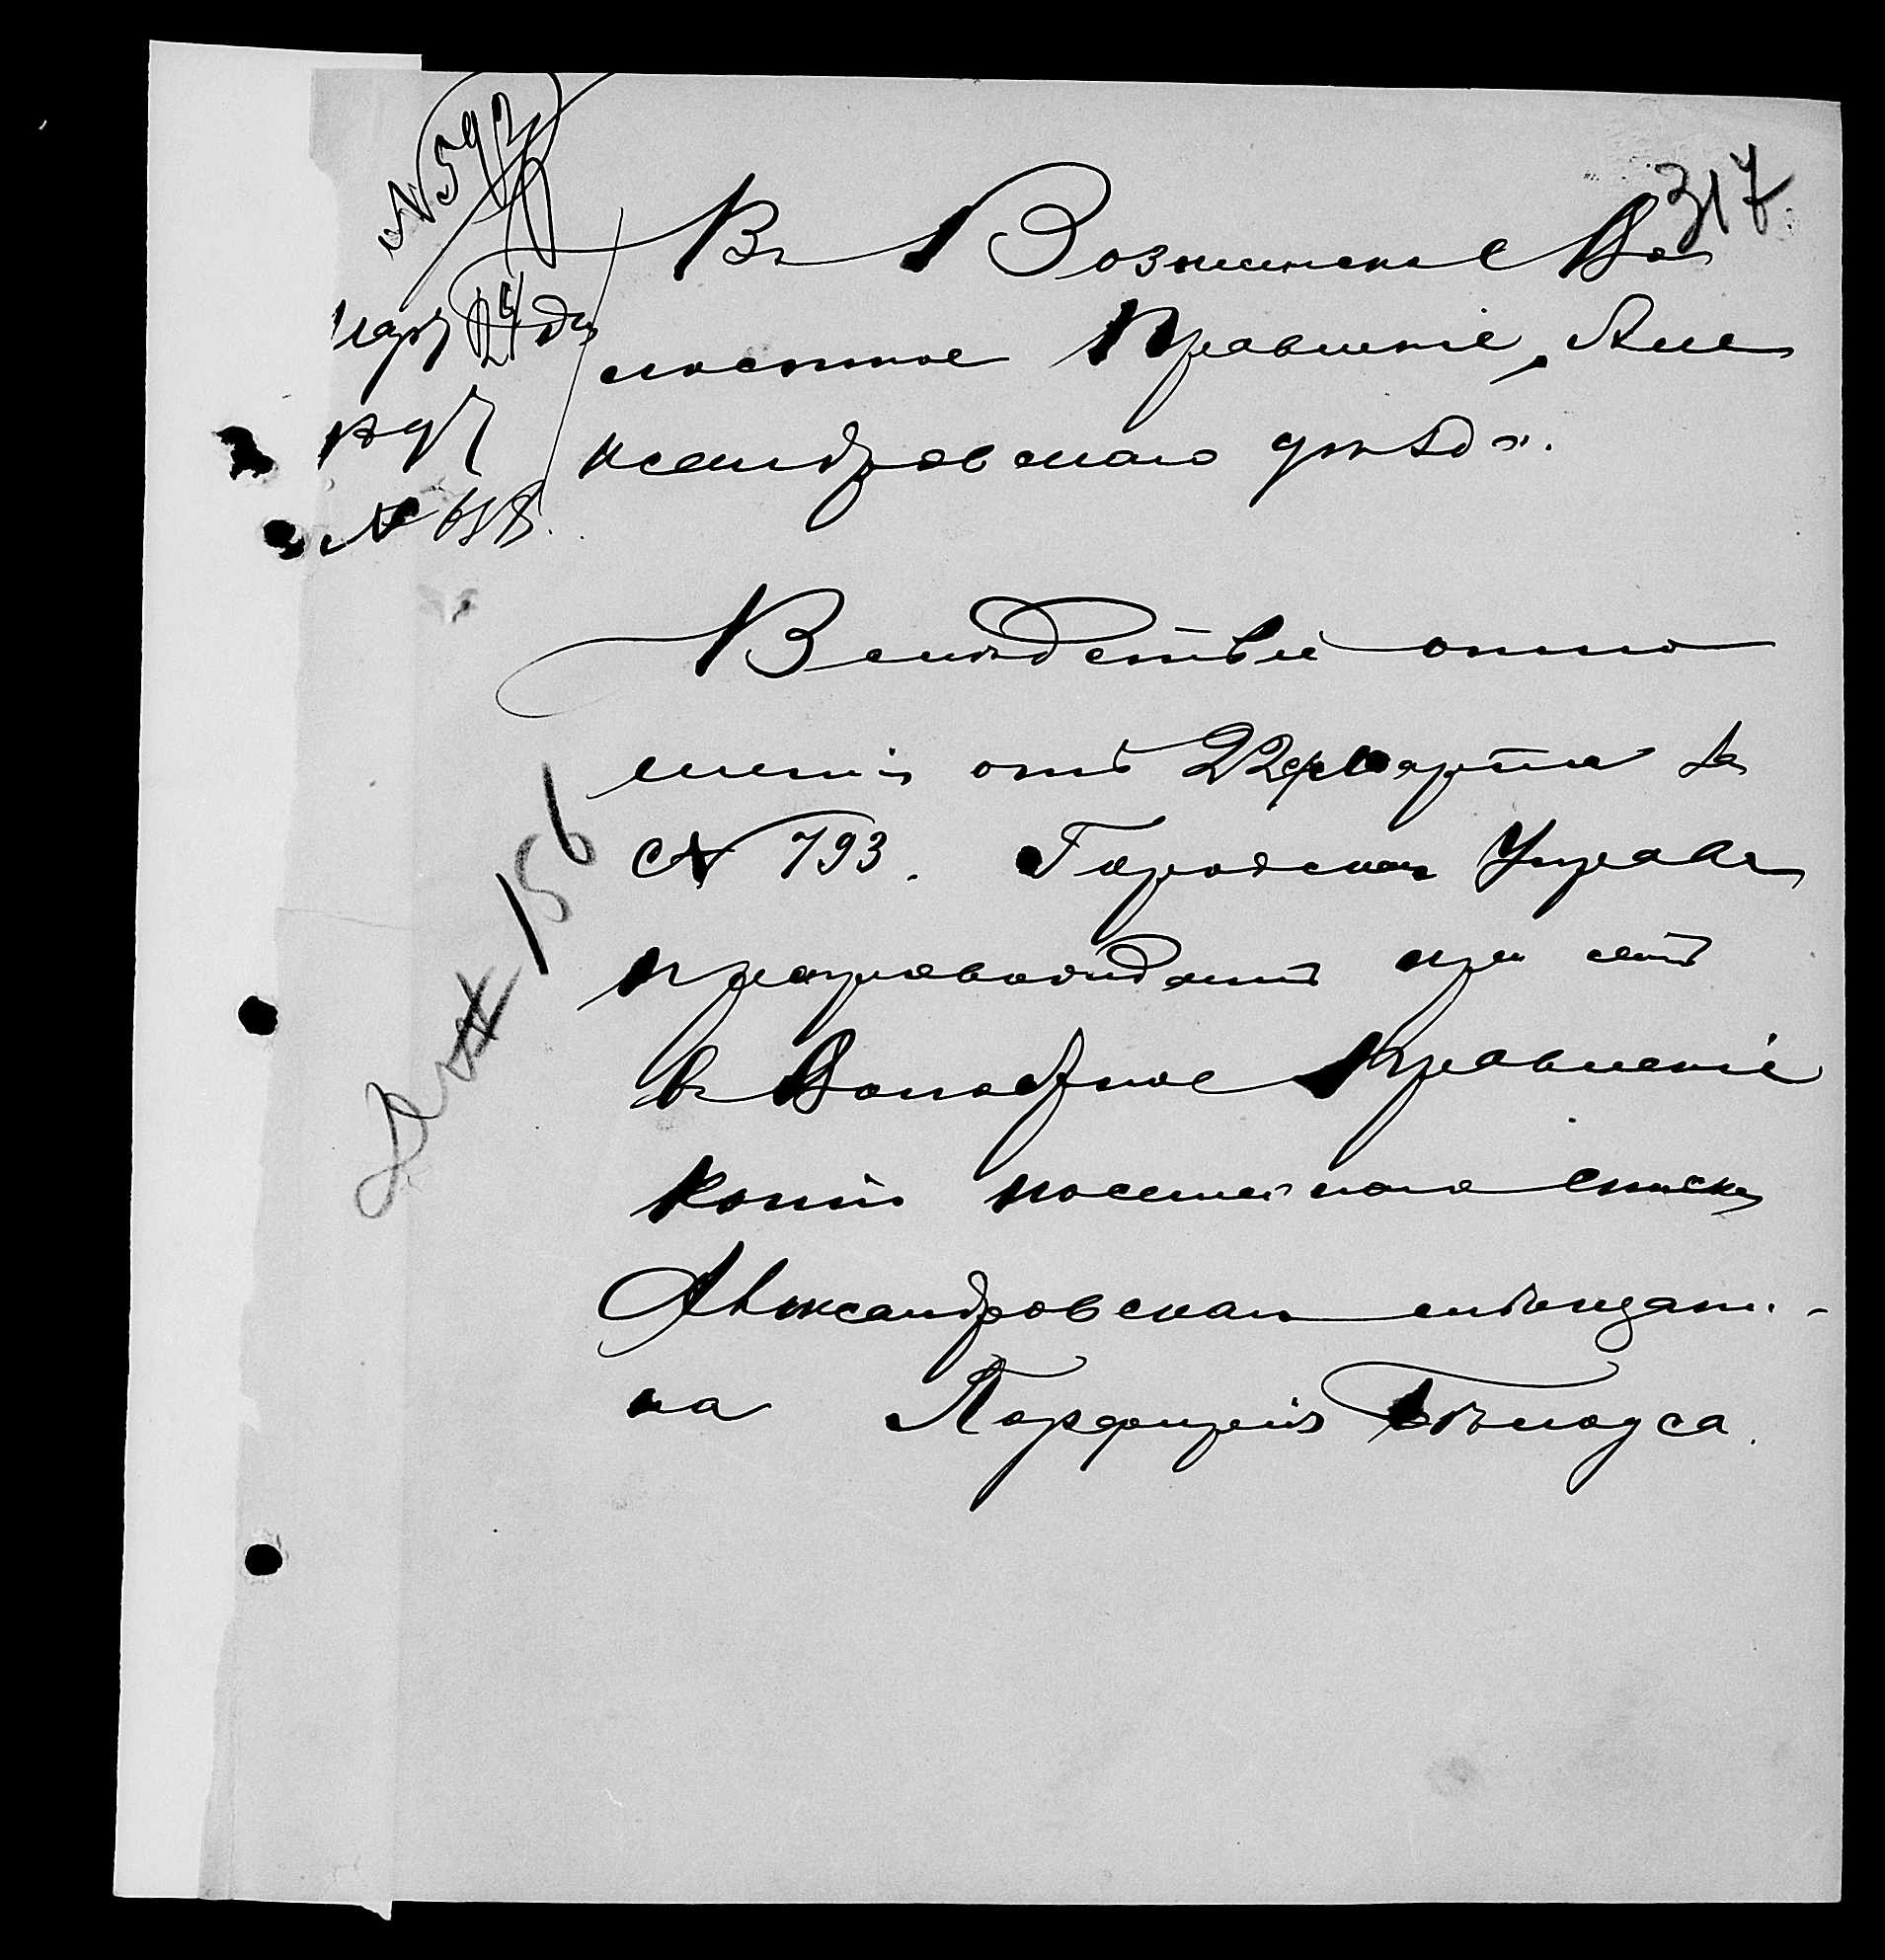 317
№ 592
Въ Вознесенское Во
Мар. 24 дн
лостное Правленіе, Але
ксандровскаго уѣзда.
№ 658.
Вслѣдствіе отно
шенія отъ 22 Марта за
№ 793. Городская Управа
препровождаетъ при семъ
въ Волостное Правленіе
копію посемейнаго списка
Александровскаго мѣщани-
на Порфирія Бѣлоуса.
156